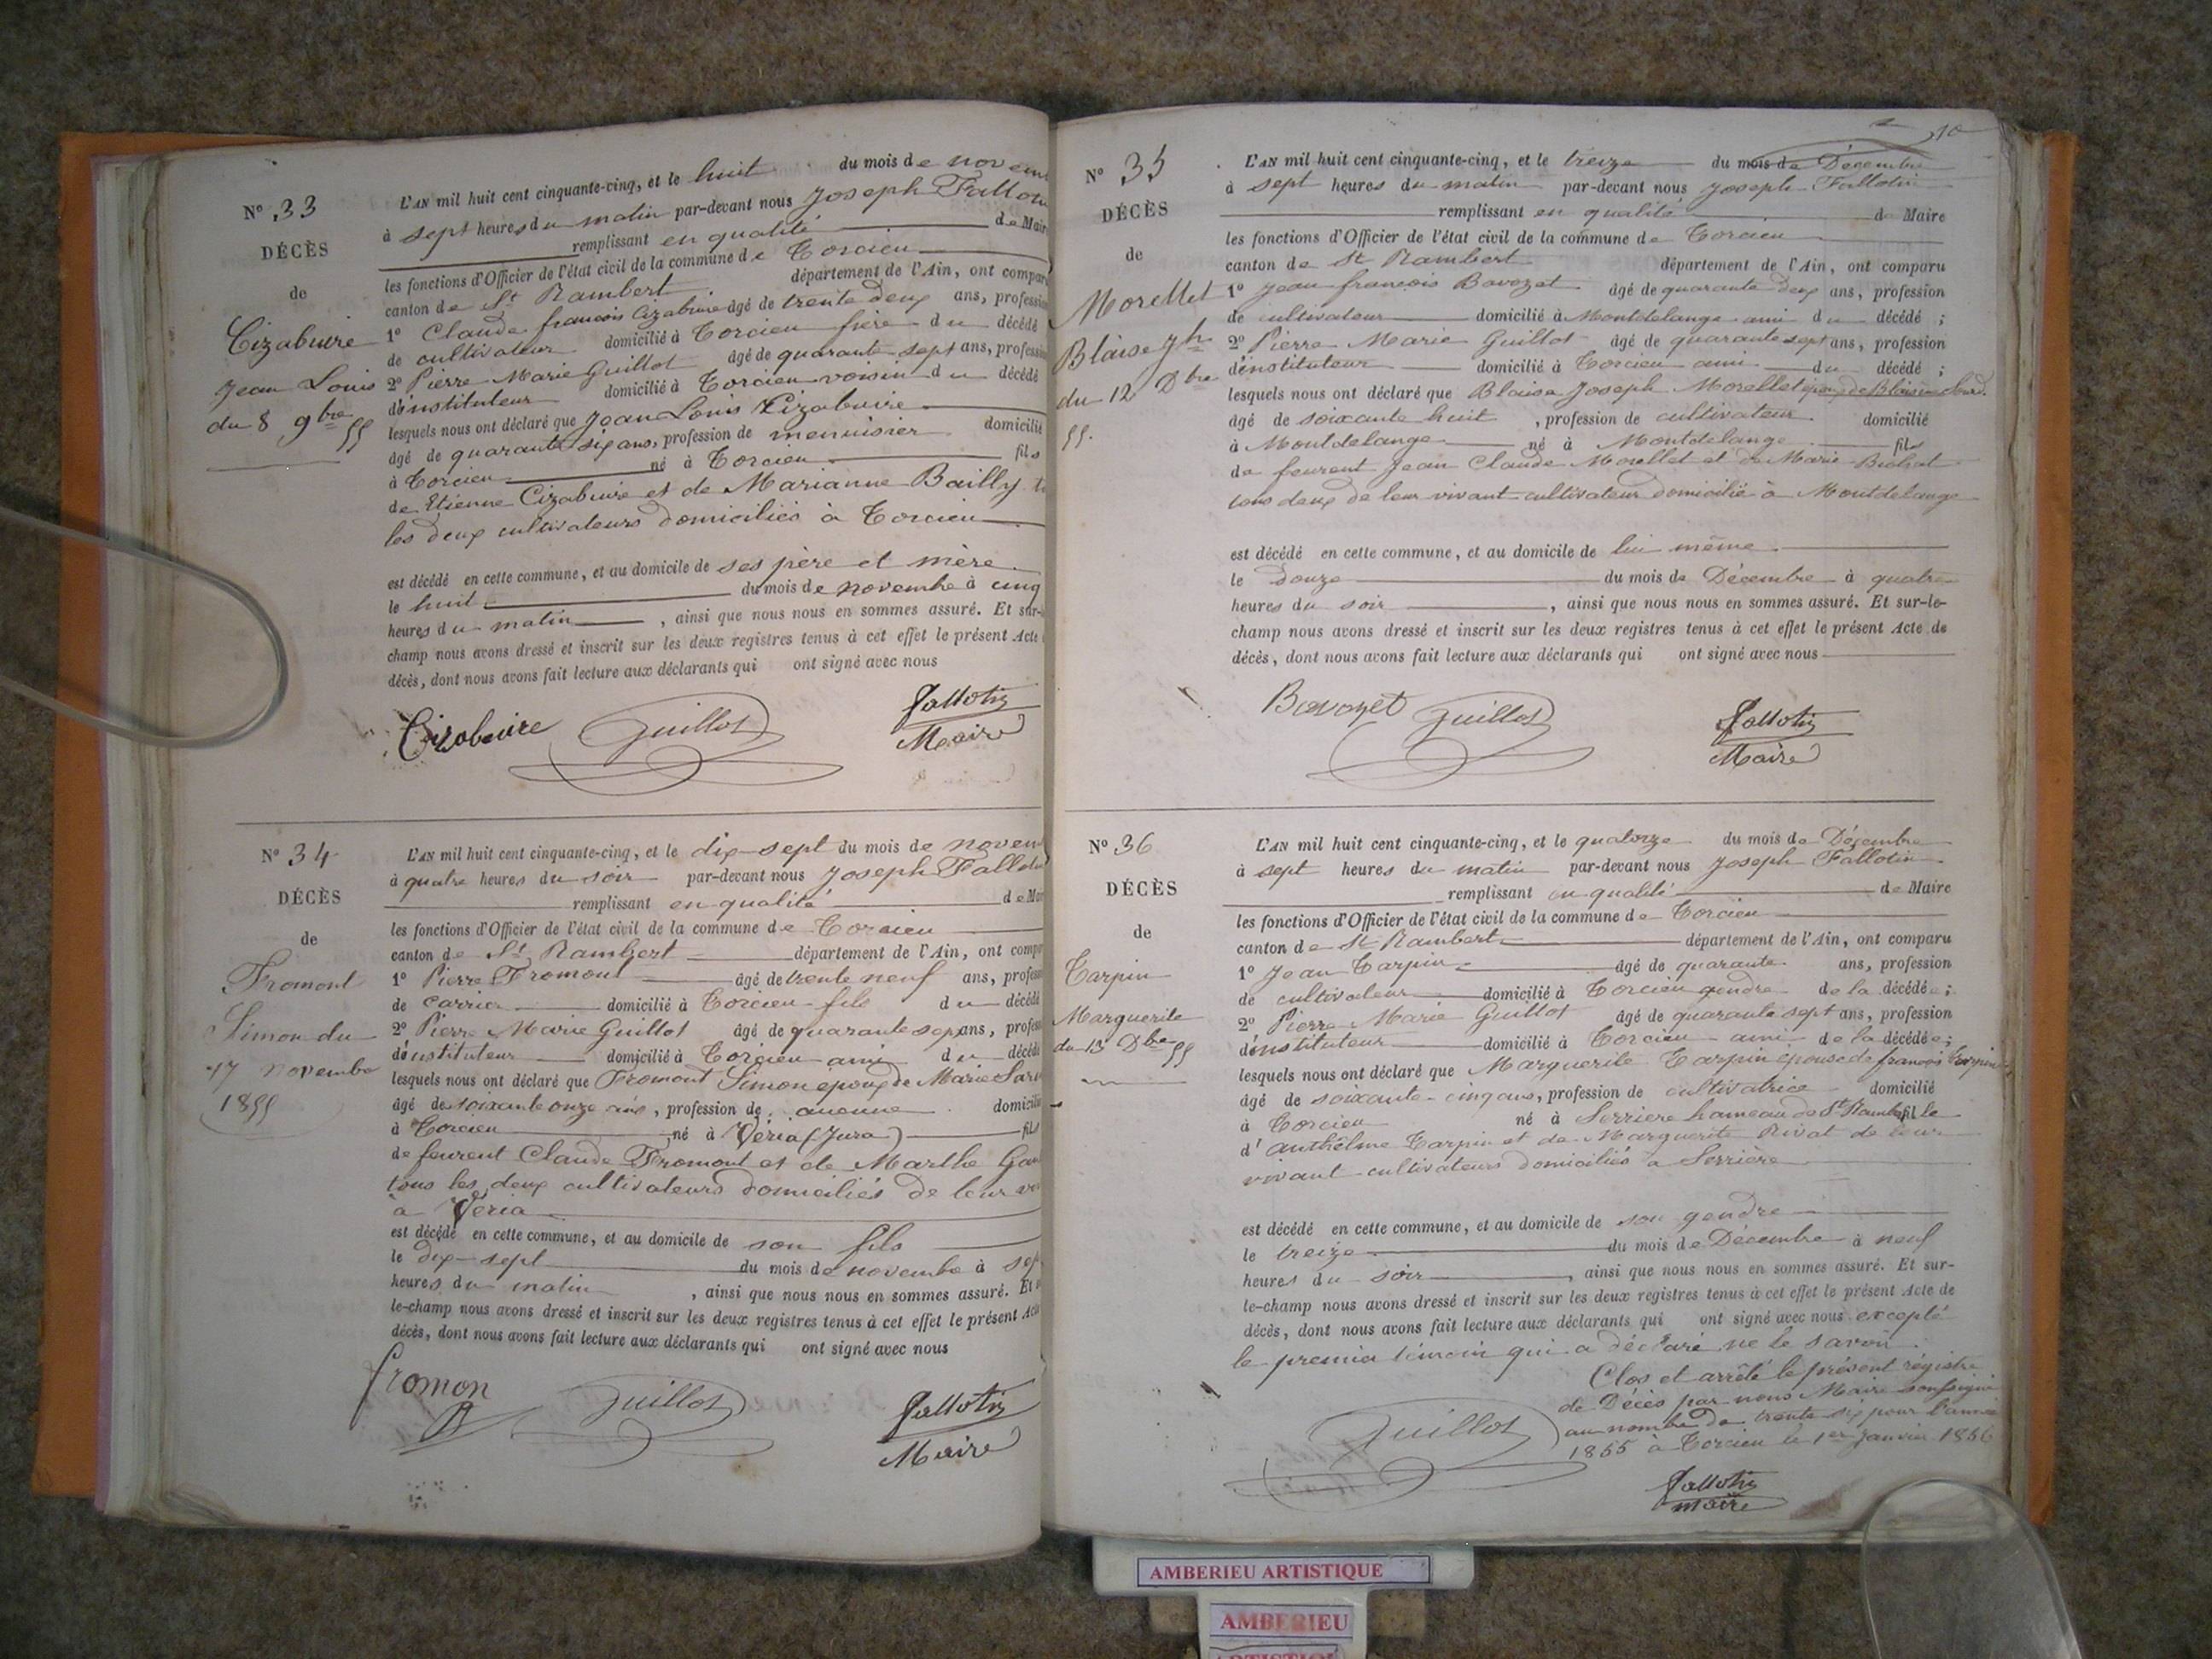 N° 33
DÉCÈS
de
Cizabuire
Jean Louis
du 8 9bre
55
L'AN mil huit cent cinquante-cinq, et le huit du mois de novem
à sept heures du matin par-devant nous Joseph Fallotin
remplissant en qualité de Maire
les fonctions d'Officier de l'état civil de la commune de Torcieu
canton de St Rambert département de l'Ain, ont comparu
1° Claude françois Cizabuire âgé de trente deux ans, profession
de cultivateur domicilié à Torcieu frère du décédé
2° Pierre Marie Guillot âgé de quarante-sept ans, profession
d'instituteur domicilié à Torcieu voisin du décédé
lesquels nous ont déclaré que Jean Louis Cizabuire
âgé de quarante six ans, profession de menuisier domicilié
à Torcieu né à Torcieu fils
de Etienne Cizabuire et de Marianne Bailly
les deux cultivateurs domiciliés à Torcieu
est décédé en cette commune, et au domicile de ses père et mère
le huit du mois de novembre à cinq
heures du matin, ainsi que nous nous en sommes assuré. Et sur-
champ nous avons dressé et inscrit sur les deux registres tenus à cet effet le présent Acte
décès, dont nous avons fait lecture aux déclarants qui ont signé avec nous
Cizabuire Guillot Fallotin
Maire
N° 34
DÉCÈS
de
Fromont
Simon du
17 novembre
1855
L'AN mil huit cent cinquante-cinq, et le dix-sept du mois de novem
à quatre heures du soir par-devant nous Joseph Fallotin
remplissant en qualité de Mai
les fonctions d'Officier de l'état civil de la commune de Torcieu
canton de St Rambert département de l'Ain, ont compa
1° Pierre Fromont âgé de trente neuf ans, profess
de carrier domicilié à Torcieu fils du décédé
2° Pierre Marie Guillot âgé de quarante sept ans, profess
d'instituteur domicilié à Torcieu ami du décédé
lesquels nous ont déclaré que Fromont Simon époux de Marie
âgé de soixante onze ans, profession de aucune domicilié
à Torcieu né à Véria (Jura) fils
de feurent Claude Fromont et de Marthe
tous les deux cultivateurs domiciliés de leur
à Véria
est décédé en cette commune, et au domicile de son fils
le dix-sept du mois de novembre à sep
heures du matin, ainsi que nous nous en sommes assuré. Et
le-champ nous avons dressé et inscrit sur les deux registres tenus à cet effet le présent Acte
décès, dont nous avons fait lecture aux déclarants qui ont signé avec nous
fromon Guillot Fallotin
Maire
10
N° 35
DÉCÈS
de
Morellet
Blaise Jh
du 12 Dbre
55.
L'AN mil huit cent cinquante-cinq, et le treize du mois de Décembre
à sept heures du matin par-devant nous Joseph Fallotin
remplissant en qualité de Maire
les fonctions d'Officier de l'état civil de la commune de Torcieu
canton de St Rambert département de l'Ain, ont comparu
1° Jean françois Bavozet âgé de quarante deux ans, profession
de cultivateur domicilié à Montdelange ami du décédé;
2° Pierre Marie Guillot âgé de quarante sept ans, profession
d'instituteur domicilié à Torcieu ami du décédé;
lesquels nous ont déclaré que Blaise Joseph Morellet époux de
âgé de soixante huit, profession de cultivateur domicilié
à Montdelange né à Montdelange fils
de feurent Jean Claude Morellet et de Marie Bichat
tous deux de leur vivant cultivateur domicilié à Montdelange
est décédé en cette commune, et au domicile de lui même
le douze du mois de Décembre à quatre
heures du soir, ainsi que nous nous en sommes assuré. Et sur-le-
champ nous avons dressé et inscrit sur les deux registres tenus à cet effet le présent Acte de
décès, dont nous avons fait lecture aux déclarants qui ont signé avec nous
Bavozet Guillot Fallotin
Maire
N° 36
DÉCÈS
de
Tarpin
Marguerite
du 13 Dbre 55
L'AN mil huit cent cinquante-cinq, et le quatorze du mois de Décembre
à sept heures du matin par-devant nous Joseph Fallotin
remplissant en qualité de Maire
les fonctions d'Officier de l'état civil de la commune de Torcieu
canton de St Rambert département de l'Ain, ont comparu
1° Jean Tarpin âgé de quarante ans, profession
de cultivateur domicilié à Torcieu gendre de la décédée;
2° Pierre Marie Guillot âgé de quarante sept ans, profession
d'instituteur domicilié à Torcieu ami de la décédée;
lesquels nous ont déclaré que Marguerite Tarpin épouse de françois Tarpin
âgé de soixante-cinq ans, profession de cultivatrice domicilié
à Torcieu né à Serriere hameau de St Rambert fille
d'Anthelme Tarpin et de Marguerite Rivat de leur
vivant cultivateurs domiciliés à Serrière
est décédé en cette commune, et au domicile de son gendre
le treize du mois de Décembre à neuf
heures du soir, ainsi que nous nous en sommes assuré. Et sur-
le-champ nous avons dressé et inscrit sur les deux registres tenus à cet effet le présent Acte de
décès, dont nous avons fait lecture aux déclarants qui ont signé avec nous excepté
le premier témoin qui a déclaré ne le savoir.
Clos et arrêté le présent régistre
de Décès par nous Maire soussigné
au nombre de trente-six pour l'année
1855 à Torcieu le 1er janvier 1856
Guillot
Fallotin
maire
AMBERIEU ARTISTIQUE
AMBERIEU
ARTISTIQUE